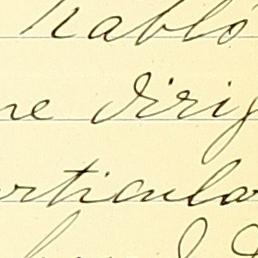 hablo
ne dirig
rticular